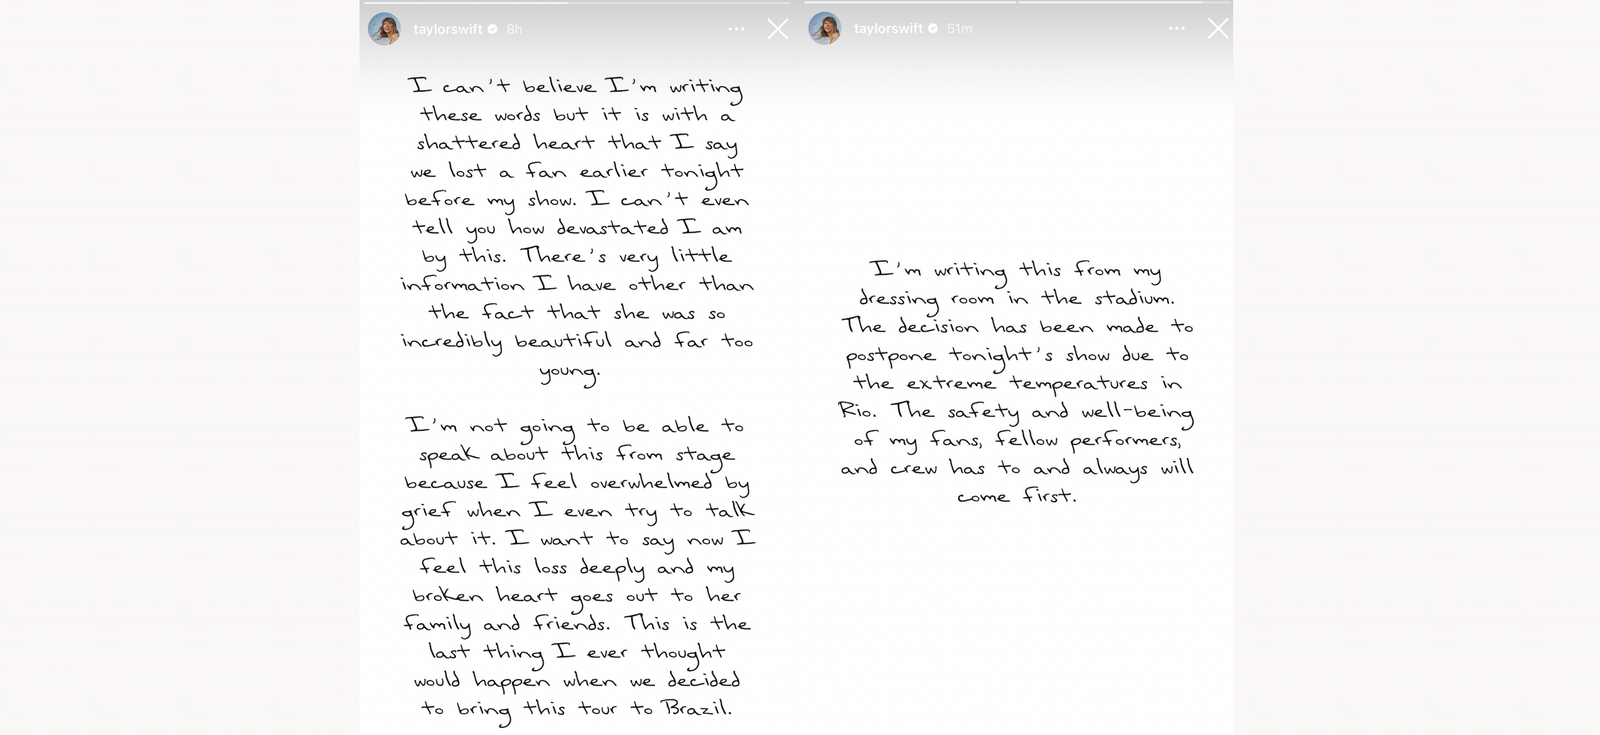 taylorswift 8h
I can't believe I'm writing
these words but it is with a
shattered heart that I say
we lost a fan earlier tonight
before my show. I can't even
tell you how devastated I am
by this. There's very little
information I have other than
the fact that she was so
incredibly beautiful and far too
young.
I'm not going to be able to
speak about this from stage
because I feel overwhelmed by
grief when I even try to talk
about it. I want to say now I
feel this loss deeply and my
broken heart goes out to her
family and friends. This is the
last thing I ever thought
would happen when we decided
to bring this tour to Brazil.
taylorswift 51m
I'm writing this from my
dressing room in the stadium.
The decision has been made to
postpone tonight's show due to
the extreme temperatures in
Rio. The safety and well-being
of my fans, fellow performers,
and crew has to and always will
come first.